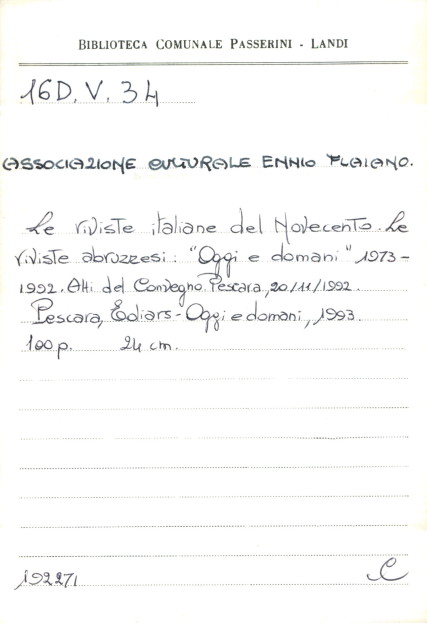 BIBLIOTECA COMUNALE PASSERINI - LANDI
16D.V.34
ASSOCIAZIONE CULTURALE ENNIO FLAIANO.
Le riviste italiane del Novecento. Le
riviste abruzzesi: "Oggi e domani" 1973-
1992. Atti del Convegno. Pescara, 20/11/1992.
Pescara, Ediars-Oggi e domani, 1993.
100 p. 24 cm.
192271 C